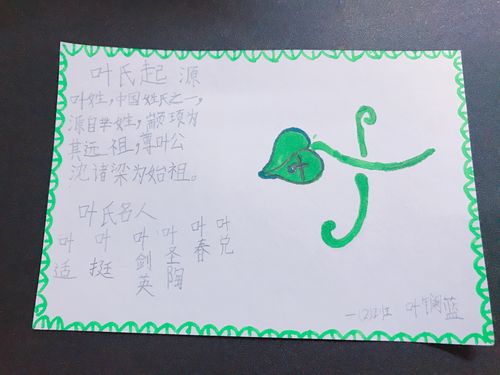 叶氏起源
叶姓，中国姓氏之一，
源自芈姓，颛顼为
其远祖，尊叶公
沈诸梁为始祖。
叶氏名人
叶适
叶挺
叶剑英
叶圣陶
叶春
叶兑
叶
一(2)班 叶 蓝